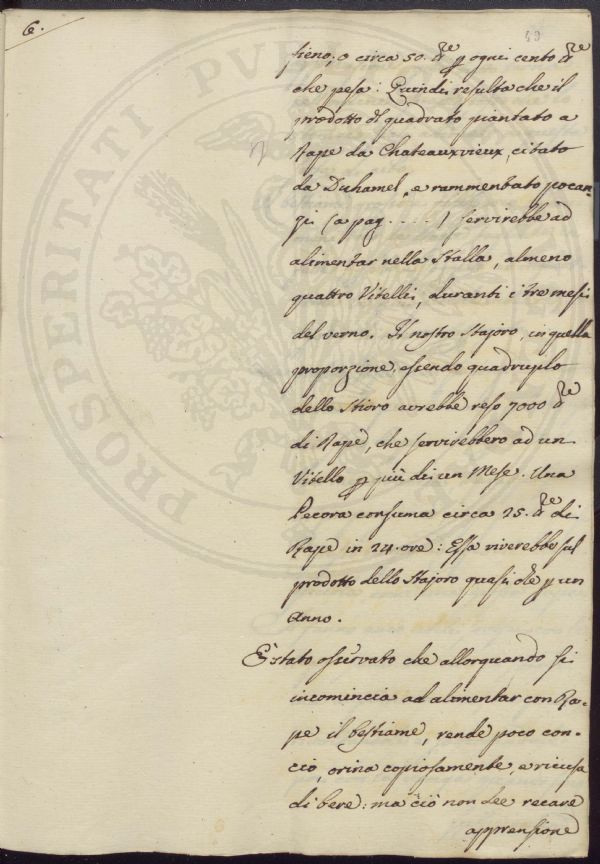 6.
49
fieno; o circa 50. lre p ogni cento lre
che pesa: Quindi resulta che il
prodotto d quadrato piantato a
Rape da Chateauxvieux, citato
da Duhamel, e rammentato pocan=
zi (a pag. . . . ) servirebbe ad
alimentar nella Stalla, almeno
quattro Vitelli, duranti i tre mesi
del verno. Il nostro Stajoro, in quella
proporzione, essendo quadruplo
dello Stioro avrebbe reso 7000 lre
di Rape, che servirebbero ad un
Vitello p più di un Mese. Una
Pecora consuma circa 25. lre di
Rape in 24. ore: Essa viverebbe sul
prodotto dello Stajoro quasi che p un
Anno.
È stato osservato che allorquando si
incomincia ad alimentar con Ra=
pe il bestiame, rende poco con=
cio, orina copiosamente, e ricusa
di bere: ma ciò non dee recare
apprensione
PROSPERITATI PVB